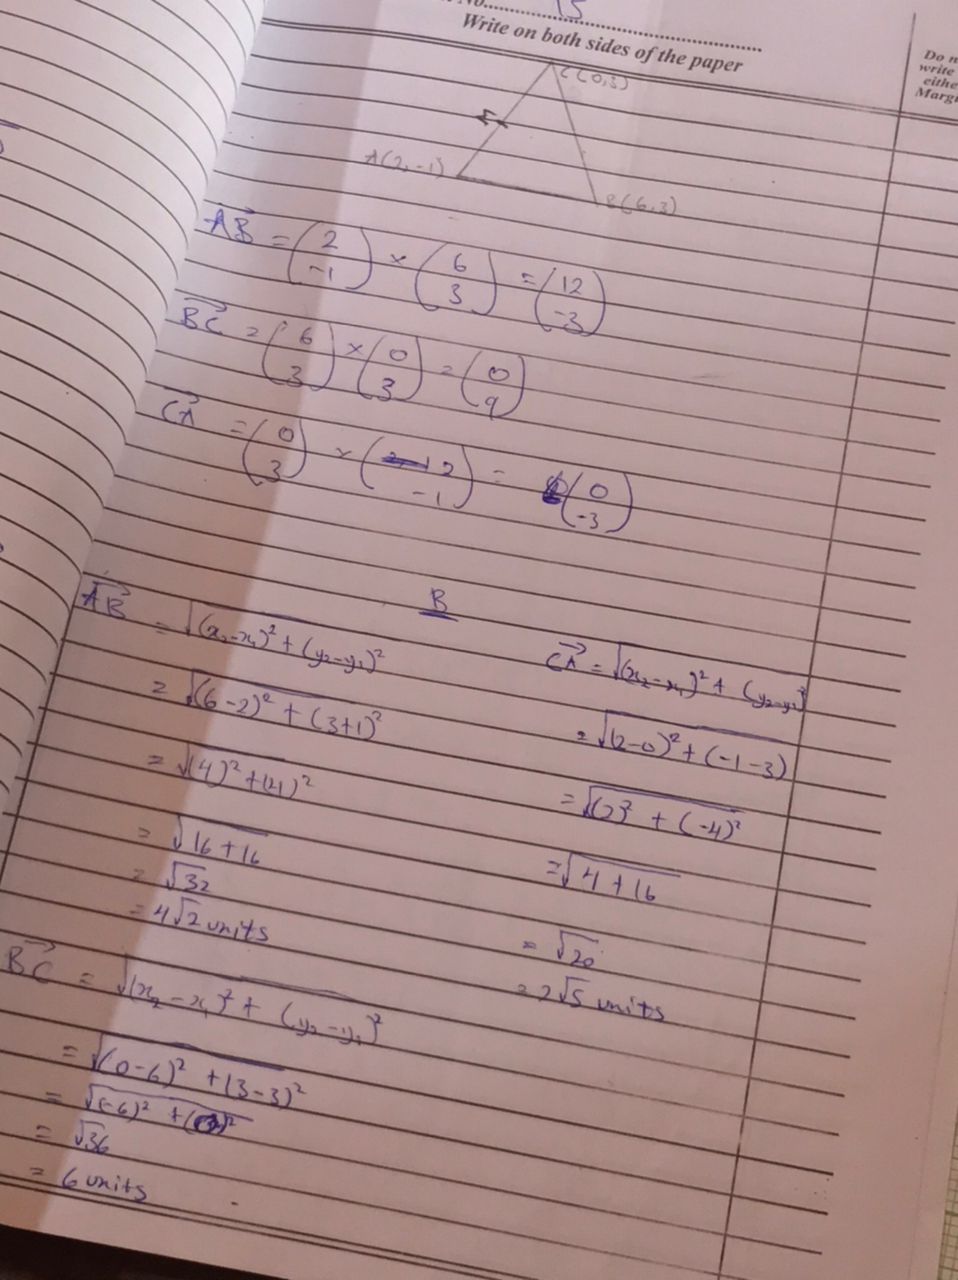 No. 13
Write on both sides of the paper
Do n
write
eithe
Margi
C(0,3)
A(2,-1)
B(6,3)
AB = (2 -1) × (6 3) = (12 -3)
BC = (6 3) × (0 3) = (0 9)
CA = (0 3) × (2 -1) = (0 -3)
B
AB = √(x₂-x₁)² + (y₂-y₁)²
= √(6-2)² + (3+1)²
= √(4)² + (4)²
= √16+16
= √32
= 4√2 units
BC = √(x₂-x₁)² + (y₂-y₁)²
= √(0-6)² + (3-3)²
= √(-6)² + (0)²
= √36
= 6 units
CA = √(x₂-x₁)² + (y₂-y₁)²
= √(2-0)² + (-1-3)
= √(2)² + (-4)²
= √4+16
= √20
= 2√5 units